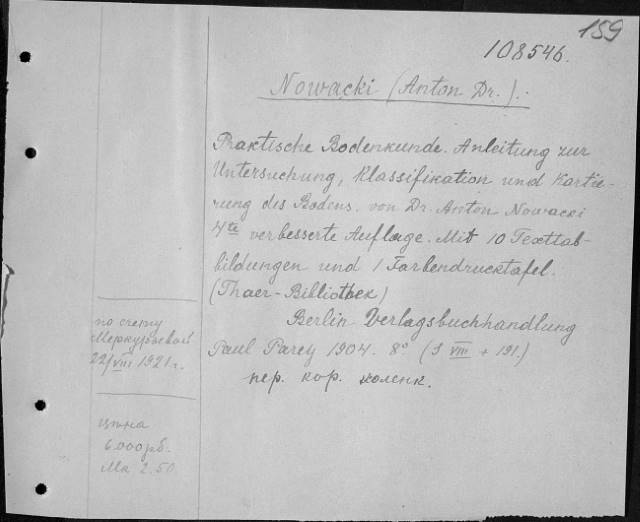 159
108546.
Nowacki (Anton Dr.).
Praktische Bodenkunde. Anleitung zur
Untersuchung, Klassifikation und Kartie-
rung des Bodens. von Dr. Anton Nowacki
4te verbesserte Auflage. Mit 10 Texttab-
bildungen und 1 Farbendrucktafel.
(Thaer-Bibliothek)
Berlin Verlagsbuchhandlung
Paul Parey 1904. 8° ( VIII + 191.)
пер. кор. коленк.
по счету
Меркурьевой
22/VIII 1921 г.
цѣна
6.000 рб.
Ма 2.50